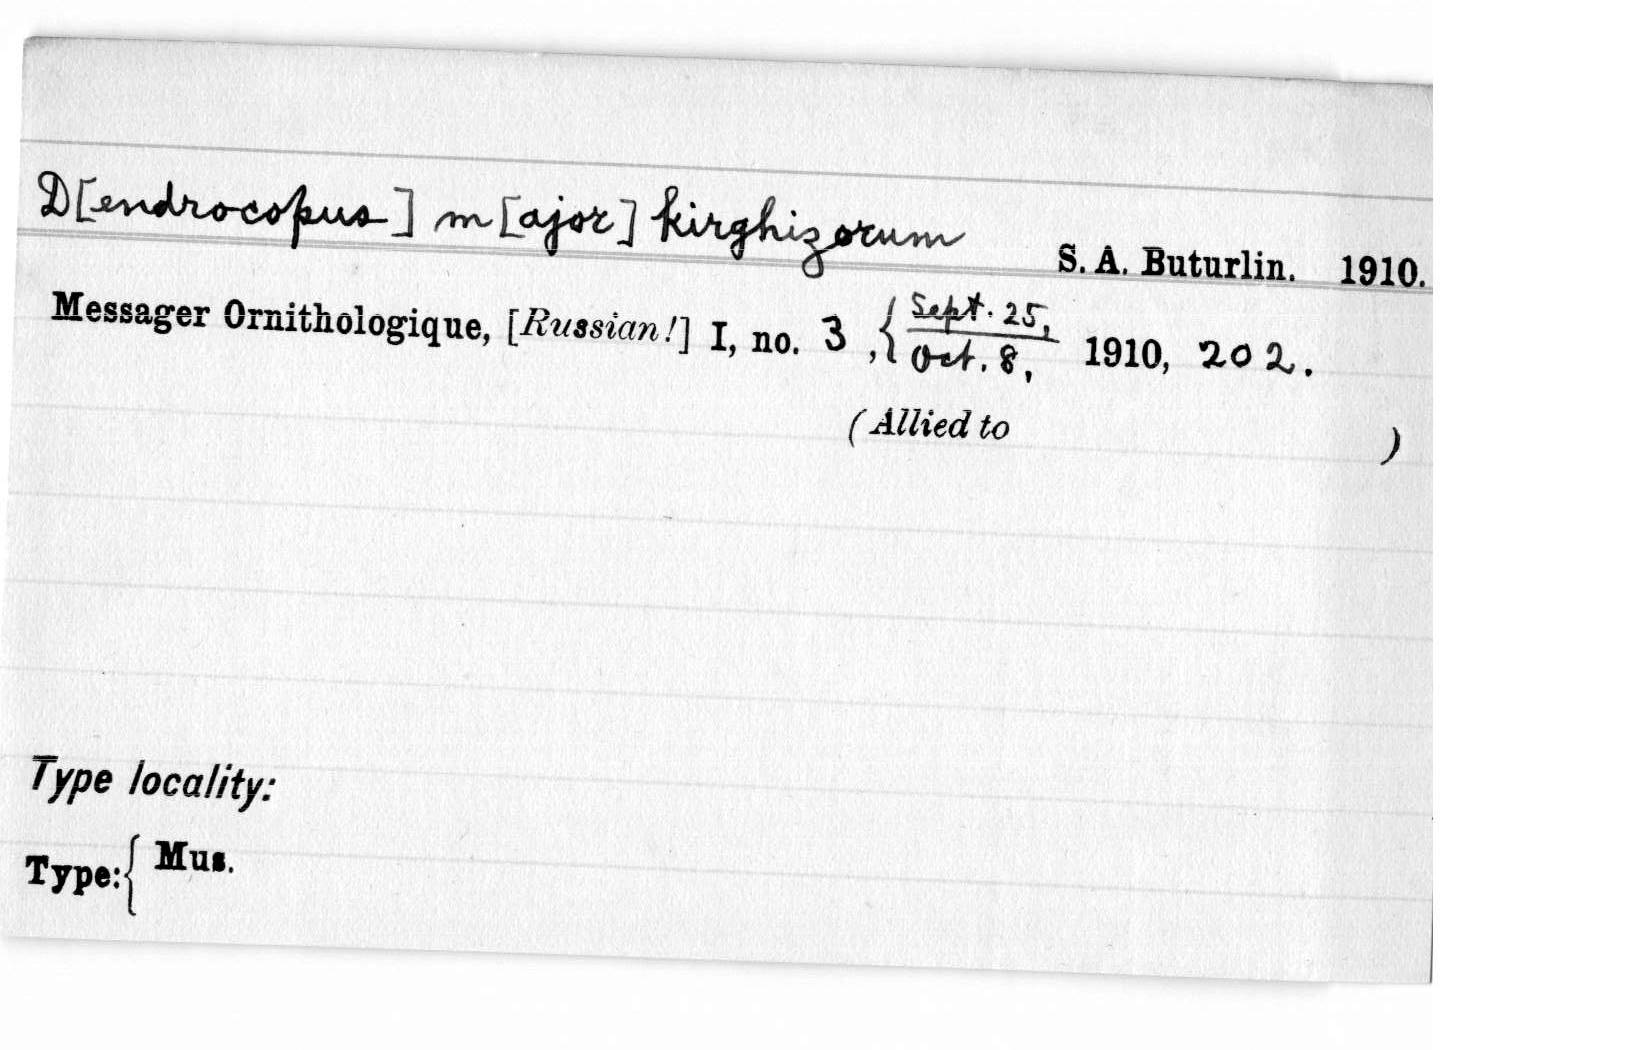 D[endrocopus] m[ajor] kirghizorum S. A. Buturlin. 1910.
Messager Ornithologique, [Russian!] I, no. 3, { Sept. 25, / Oct. 8, 1910, 202.
(Allied to )
Type locality:
Type: { Mus.